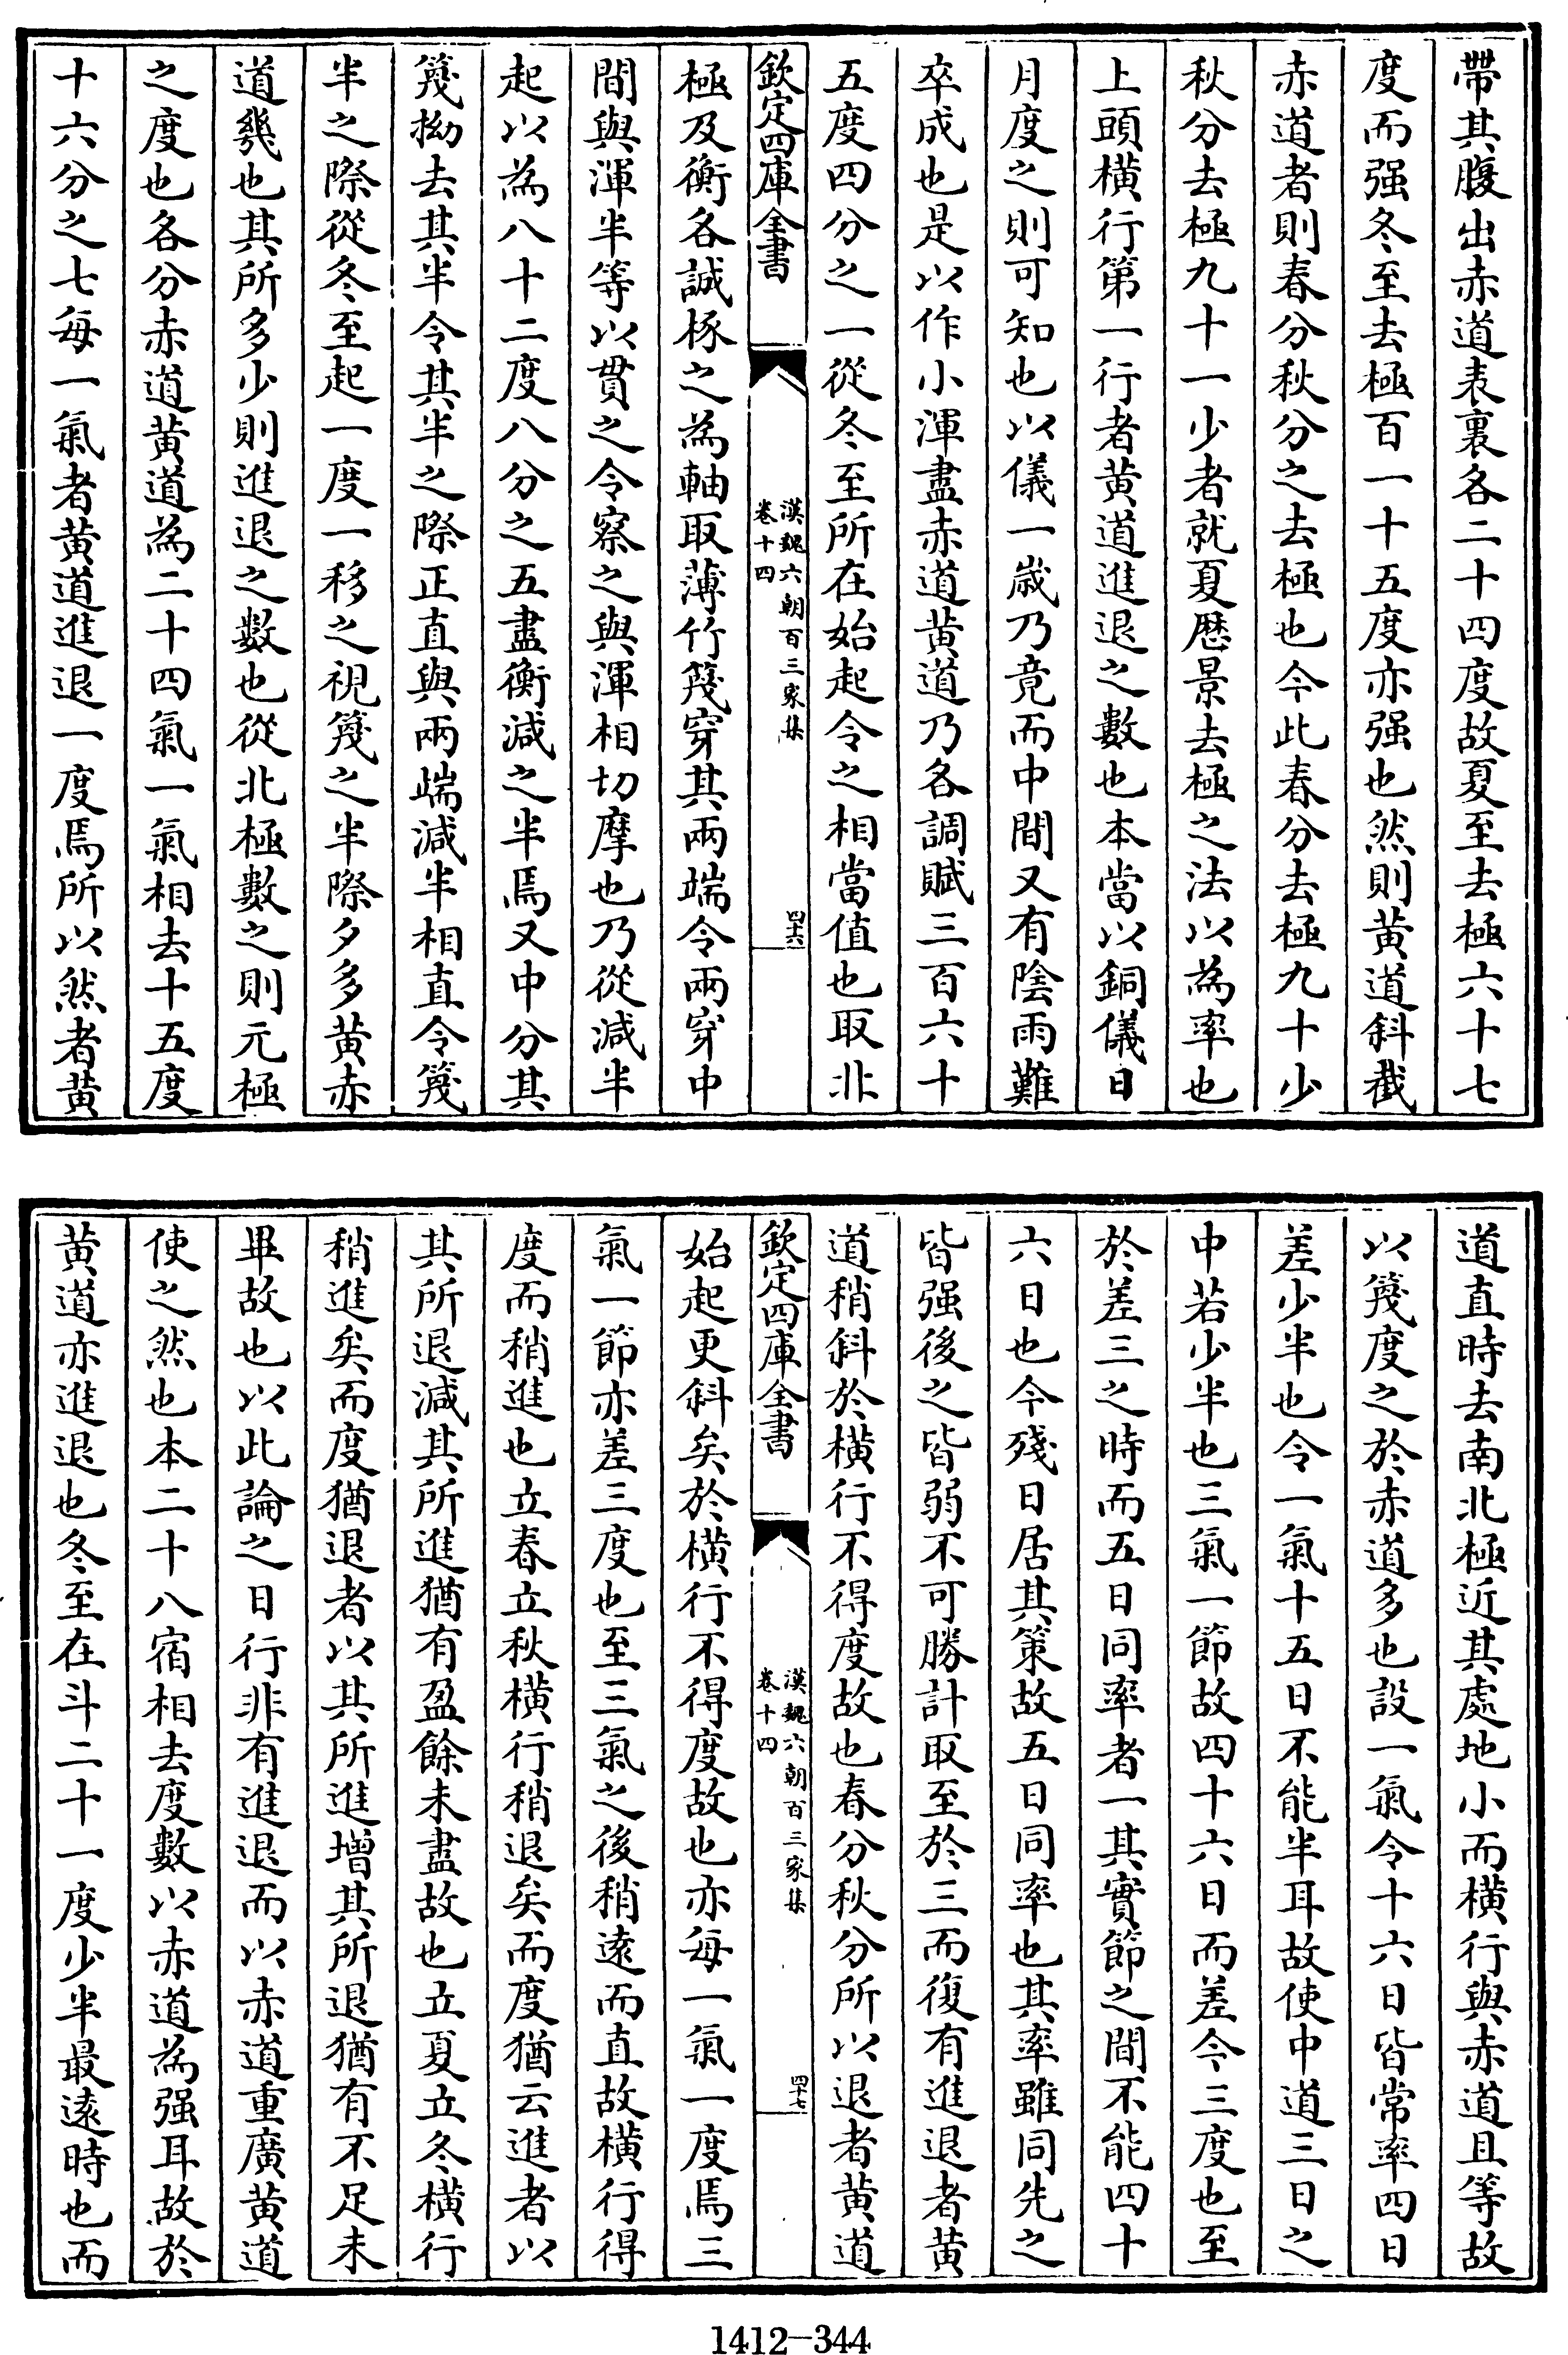 帶其腹出赤道表裏各二十四度故夏至去極六十七
度而强冬至去極百一十五度亦强也然則黄道斜截
赤道者則春分秋分之去極也今此春分去極九十少
秋分去極九十一少者就夏厯景去極之法以為率也
上頭横行第一行者黄道進退之數也本當以銅儀日
月度之則可知也以儀一歳乃竟而中間又有陰雨難
卒成也是以作小渾盡赤道黄道乃各調賦三百六十
五度四分之一從冬至所在始起令之相當值也取北
欽定四庫全書
漢魏六朝百三家集
卷十四
四十六
極及衡各誠椓之為軸取薄竹篾穿其兩端令兩穿中
間與渾半等以貫之令察之與渾相切摩也乃從減半
起以為八十二度八分之五盡衡減之半焉又中分其
篾拗去其半令其半之際正直與兩端減半相直令篾
半之際從冬至起一度一移之視篾之半際夕多黄赤
道幾也其所多少則進退之數也從北極數之則元極
之度也各分赤道黄道為二十四氣一氣相去十五度
十六分之七每一氣者黄道進退一度焉所以然者黄
道直時去南北極近其處地小而横行與赤道且等故
以篾度之於赤道多也設一氣令十六日皆常率四日
差少半也令一氣十五日不能半耳故使中道三日之
中若少半也三氣一節故四十六日而差令三度也至
於差三之時而五日同率者一其實節之間不能四十
六日也今殘日居其策故五日同率也其率雖同先之
皆强後之皆弱不可勝計取至於三而復有進退者黄
道稍斜於横行不得度故也春分秋分所以退者黄道
欽定四庫全書
漢魏六朝百三家集
卷十四
四十七
始起更斜矣於横行不得度故也亦每一氣一度焉三
氣一節亦差三度也至三氣之後稍逺而直故横行得
度而稍進也立春立秋横行稍退矣而度猶云進者以
其所退減其所進猶有盈餘未盡故也立夏立冬横行
稍進矣而度猶退者以其所進增其所退猶有不足未
畢故也以此論之日行非有進退而以赤道重廣黄道
使之然也本二十八宿相去度數以赤道為强耳故於
黄道亦進退也冬至在斗二十一度少半最逺時也而
1412-344